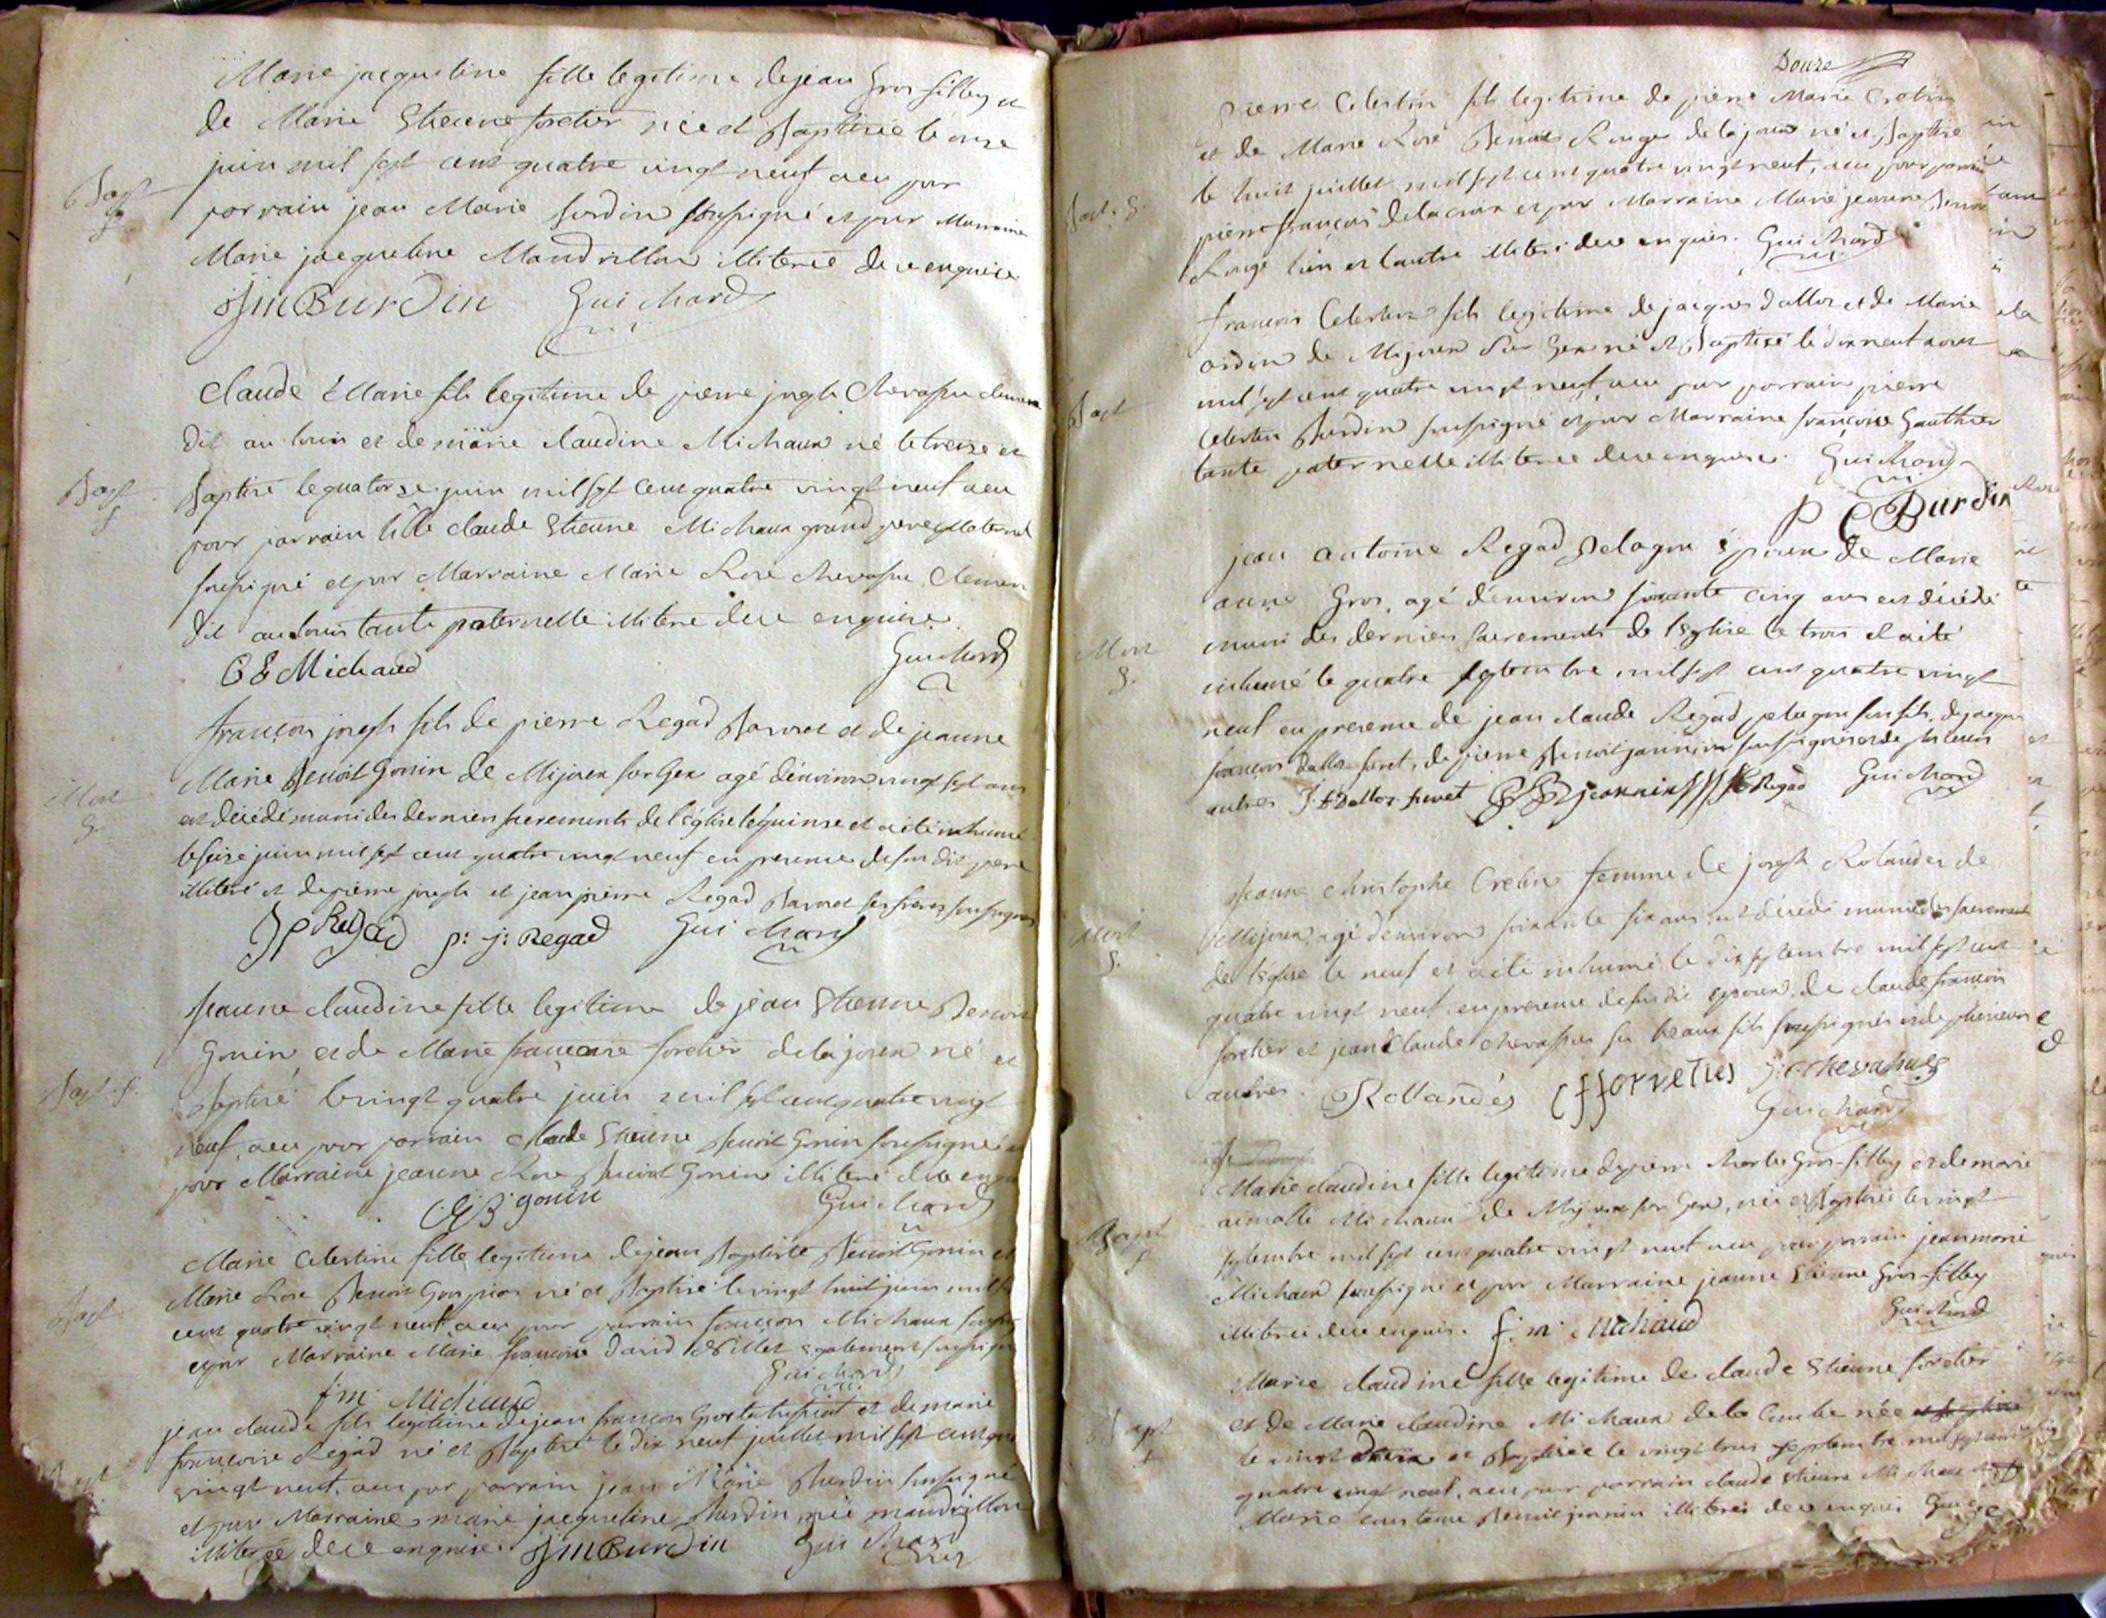 Marie jacqueline fille legitime de jean Gros filley et
de Marie Etienne foretier née et Baptisée le onze
juin mil sept cent quatre vingt neuf a eu pour
Bapt
parrain jean Marie Burdin soussigné et pour Marraine
Marie jacqueline Mandrillon illiterée de ce enquise
JM Burdin Guichard
Claude Marie fils legitime de pierre joseph Chevassu clement
dit au louis et de marie claudine Michaux né le treize et
Bapt
Baptisé le quatorze juin mil sept cent quatre vingt neuf a eu
pour parrain claude Etienne Michaux grand pere Maternel
soussigné et pour Marraine Marie Rose chevassu Clement
dit au louis tante paternelle illiterée de ce enquise
C E Michaud Guichard
françois joseph fils de pierre Regad et de jeanne
Marie Benoit Gonin de Mijoux sur Gex agé d'environ vingt sept ans
Mort
est décédé muni des derniers sacrements de l'église le quinze et a été inhumé
le seize juin mil sept cent quatre vingt neuf en presence de son dit pere
illiteré et de pierre joseph et jean pierre Regad ses freres soussignés
J P Regad p: j: Regad Guichard
Jeanne claudine fille legitime de jean Etienne Benoit
Gonin et de Marie françoise foretier de la joux né et
Bapt
Baptisé le vingt quatre juin mil sept cent quatre vingt
neuf, a eu pour parrain claude Etienne Benoit Gonin soussigné
pour Marraine jeanne Rose Benoit Gonin illiteré de ce
C E B gonin Guichard
Marie Celestine fille legitime de jean Baptiste Benoit Gonin et
Marie Rose Benoit né et Baptisé le vingt huit juin mil
Bapt
cent quatre vingt neuf a eu pour parrain françois Michaux
et pour Marraine Marie françoise david également
Guichard
f m Michaud
jean claude fils legitime de jean françois Gros et de marie
françoise Regad né et Baptisé le dix neuf juillet mil sept cent
Bapt
vingt neuf. a eu pour parrain jean Marie Burdin soussigné
et pour Marraine marie jacqueline Burdin née mandrillon
illiterée de ce enquise JM Burdin Guichard
Douze
Pierre Celestin fils legitime de pierre Marie Cretin
et de Marie Rose Benoit Rouge de la joux né et Baptisé
le huit juillet mil sept cent quatre vingt neuf, a eu pour parrain
Bapt.
pierre françois delacroix et pour Marraine Marie jeanne Benoit
Rouge l'un et l'autre illiteré de ce enquis. Guichard
françois Celestin fils legitime de jacques dalloz et de Marie
de Mijoux sur Gex né et Baptisé le dix neuf aout
Bapt
mil sept cent quatre vingt neuf a eu pour parrain pierre
Celestin Burdin soussigné et pour Marraine françoise Gauthier
tante paternelle illiterée de ce enquise. Guichard
P C Burdin
jean antoine Regad Pelagru époux de Marie
anne Gros, agé d'environ soixante cinq ans est décédé
Mort
muni des derniers sacrements de l'Eglise le trois et a été
inhumé le quatre septembre mil sept cent quatre vingt
neuf en presence de jean claude Regad pelagru son fils, de jacques
françois dalloz furet, de pierre Benoit jannin soussignés et de plusieurs
autres J: f Dalloz furet jeannin Regad Guichard
Jeanne christophe Cretin femme de joseph Rolandez de
Mijoux, agé d'environ soixante six ans, est décédé munie des sacrements
Mort
de l'Eglise le neuf et a été inhumé le dix septembre mil sept cent
quatre vingt neuf. en presence de son dit époux, de claude françois
foretier et jean Claude chevassus ses beaux fils soussignés et de plusieurs
autres. Rollandés C f forretier J: C chevassus
Guichard
Marie claudine fille legitime de pierre Gros-filley et de marie
Michaux de Mijoux sur Gex, née et Baptisée le vingt
Bapt
septembre mil sept cent quatre vingt neuf a eu pour parrain jean marie
Michaux soussigné et pour Marraine jeanne Etienne Gros-filley
illiterée de ce enquis. j: m: Michaud Guichard
Marie claudine fille legitime de claude Etienne foretier
et de Marie claudine Michaux de la Combe née
Bapt
le vingt deux et Baptisée le vingt trois septembre mil sept cent
quatre vingt neuf. a eu pour parrain claude Etienne Michaux
Marie Benoit jeannin illiterés de ce enquis